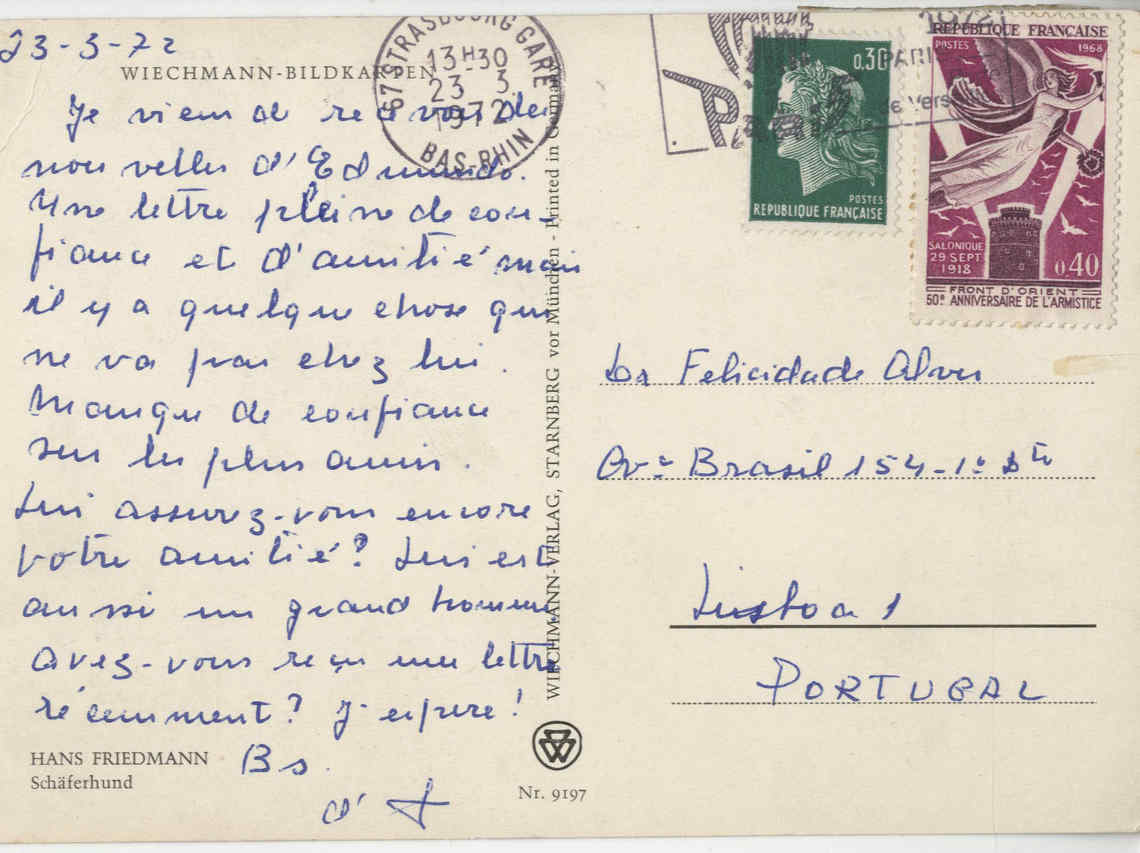 23-3-72
WIECHMANN-BILDKARTEN
Je viens de recevoir des
nouvelles d'Edmundo.
Une lettre pleine de con-
fiance et d'amitié mais
il y a quelque chose qui
ne va pas chez lui.
Manque de confiance
sur les plus amis.
Lui assurez-vous encore
votre amitié? Lui est
aussi un grand homme
avez-vous reçu une lettre
récemment? J'espère!
Bs.
d'
HANS FRIEDMANN
Schäferhund
WIECHMANN-VERLAG, STARNBERG vor München - Printed in Germany
Nr. 9197
67 STRASBOURG GARE
13H30
23 3
1972
BAS-RHIN
1972
PARIS
de Vers
0.30
POSTES
REPUBLIQUE FRANÇAISE
REPUBLIQUE FRANÇAISE
POSTES 1968
SALONIQUE
29 SEPT
1918
0,40
FRONT D'ORIENT
50e ANNIVERSAIRE DE L'ARMISTICE
Dr Felicidade Alves
Avª Brasil 154-1º Dto
Lisboa 1
PORTUGAL